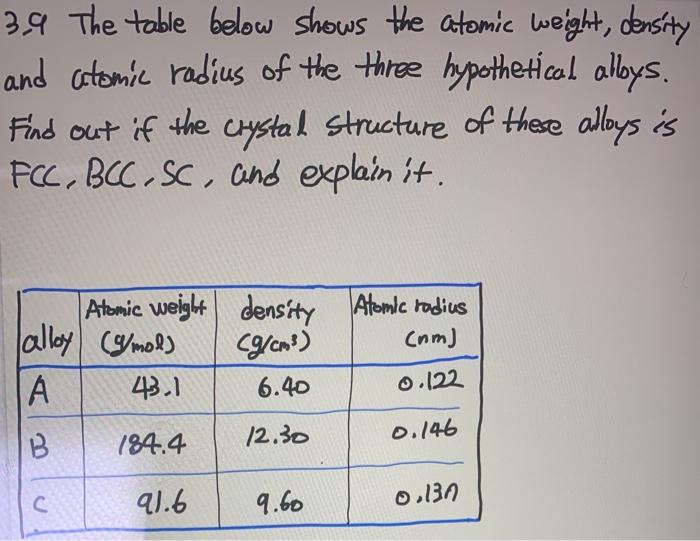 3.9 The table below shows the atomic weight, density
and atomic radius of the three hypothetical alloys.
Find out if the crystal structure of these alloys is
FCC, BCC, SC, and explain it.
alloy Atomic weight (g/mol) density (g/cm³) Atomic radius (nm)
A 43.1 6.40 0.122
B 184.4 12.30 0.146
C 91.6 9.60